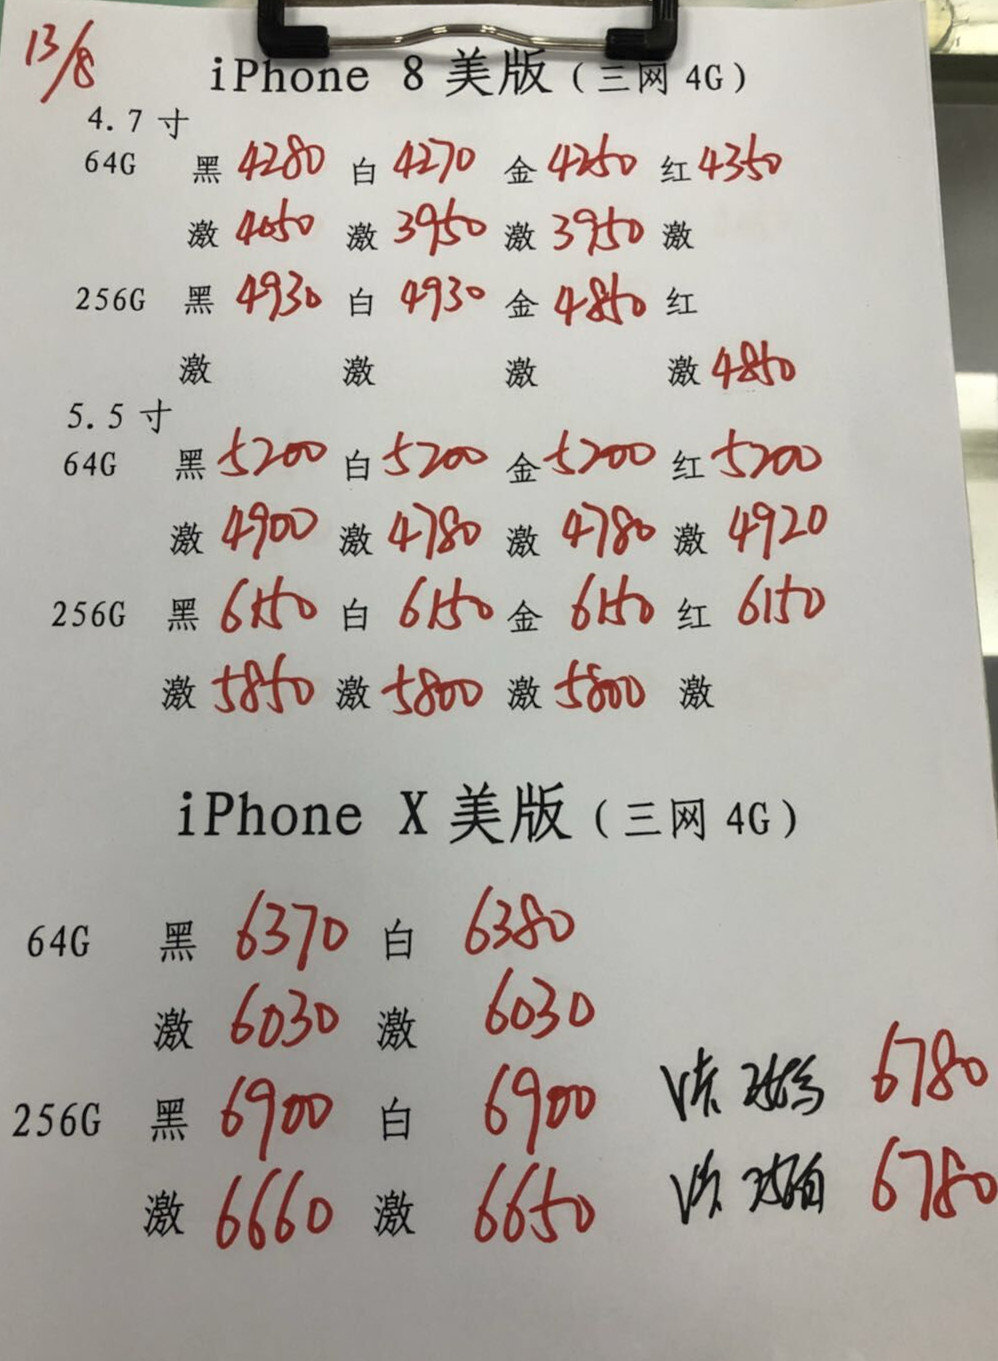 13/8
iPhone 8 美版（三网 4G）
4.7 寸
64G 黑 4280 白 4270 金 4250 红 4350
激 4050 激 3950 激 3950 激
256G 黑 4930 白 4930 金 4850 红
激 激 激 激 4850
5.5 寸
64G 黑 5200 白 5200 金 5200 红 5200
激 4900 激 4780 激 4780 激 4920
256G 黑 6150 白 6150 金 6150 红 6150
激 5850 激 5800 激 5800 激
iPhone X 美版（三网 4G）
64G 黑 6370 白 6380
激 6030 激 6030
6780
256G 黑 6900 白 6900
激 6660 激 6650 6780